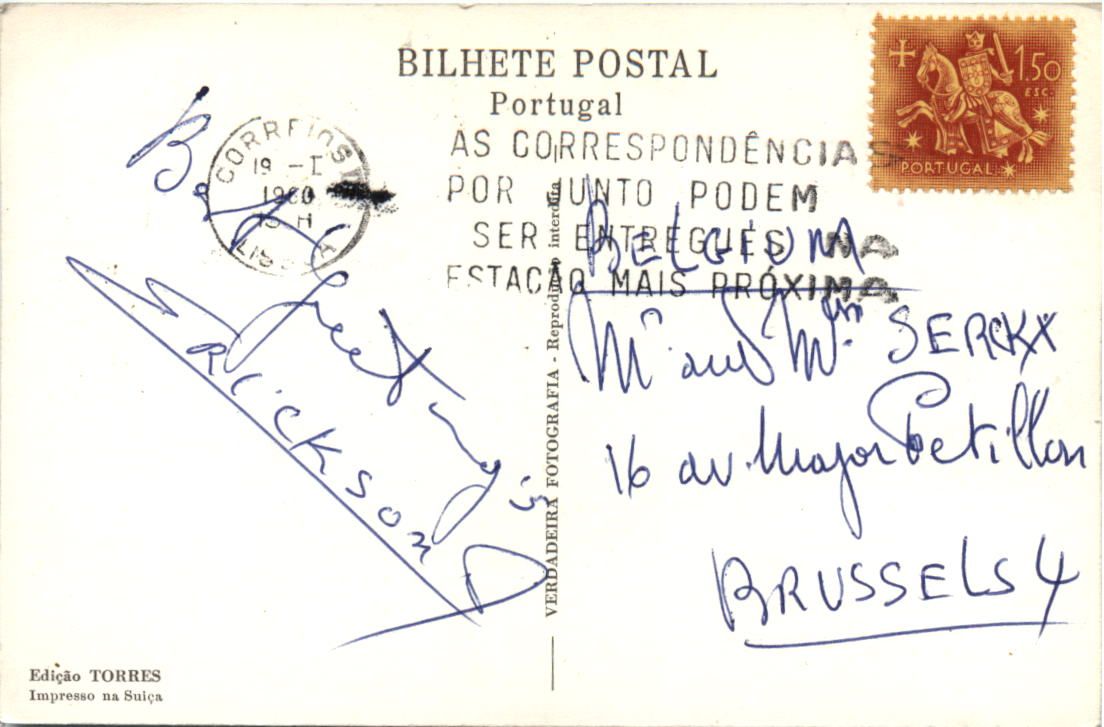 BILHETE POSTAL
Portugal
1.50
ESC.
PORTUGAL
CORREIOS
19 -I
1960
LISBOA
AS CORRESPONDÊNCIAS
POR JUNTO PODEM
SER ENTREGUES NA
ESTAÇÃO MAIS PRÓXIMA
Best Greetings
Erickson
VERDADEIRA FOTOGRAFIA - Reprodução interdita
BELGIUM
Mr and Mm SERCKX
16 av. Major Petillon
BRUSSELS 4
Edição TORRES
Impresso na Suiça